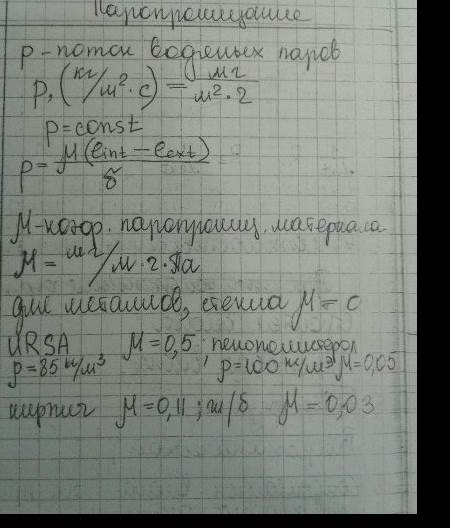 Паропроницание
p - поток водяных паров
p, (кг/м²·с) = мг/м²·ч
p = const
p = M(eint - eext)/δ
M - коэф. паропрониц. материала
M = мг/м·ч·Па
для металлов, стекла M = 0
URSA M = 0,5; пенополистерол
p = 85 кг/м³ p = 100 кг/м³ M = 0,05
кирпич M = 0,11; ж/б M = 0,03